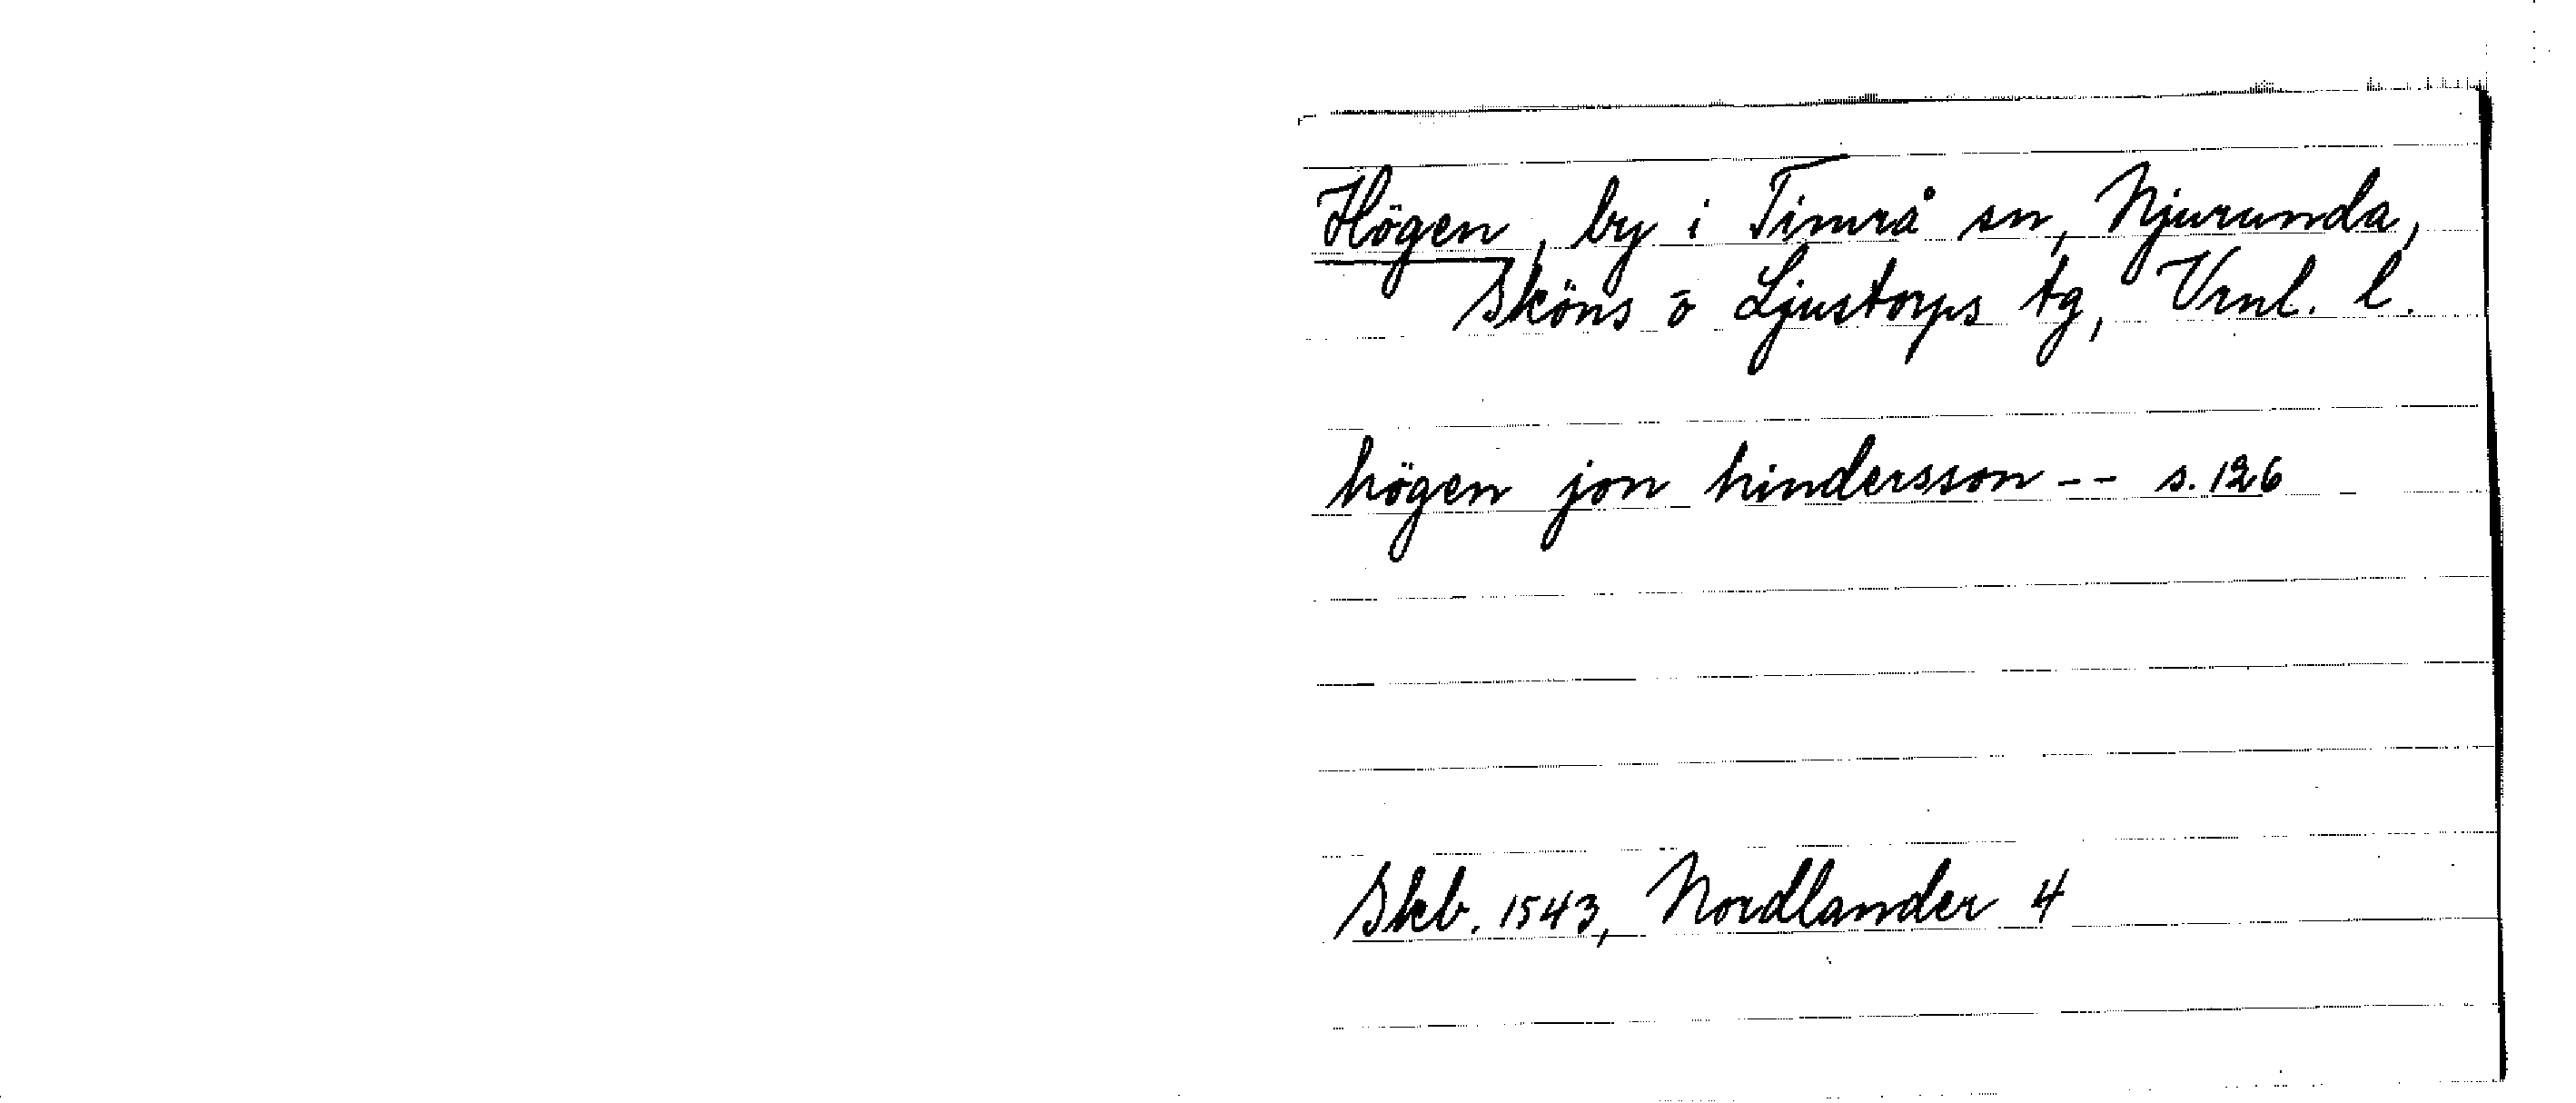 Högen, by i Timrå sn, Njurunda,
Sköns o Ljustorps tg, Vrnl. l.
högen jon hindersson -- s. 126
Skb. 1543, Nordlander 4